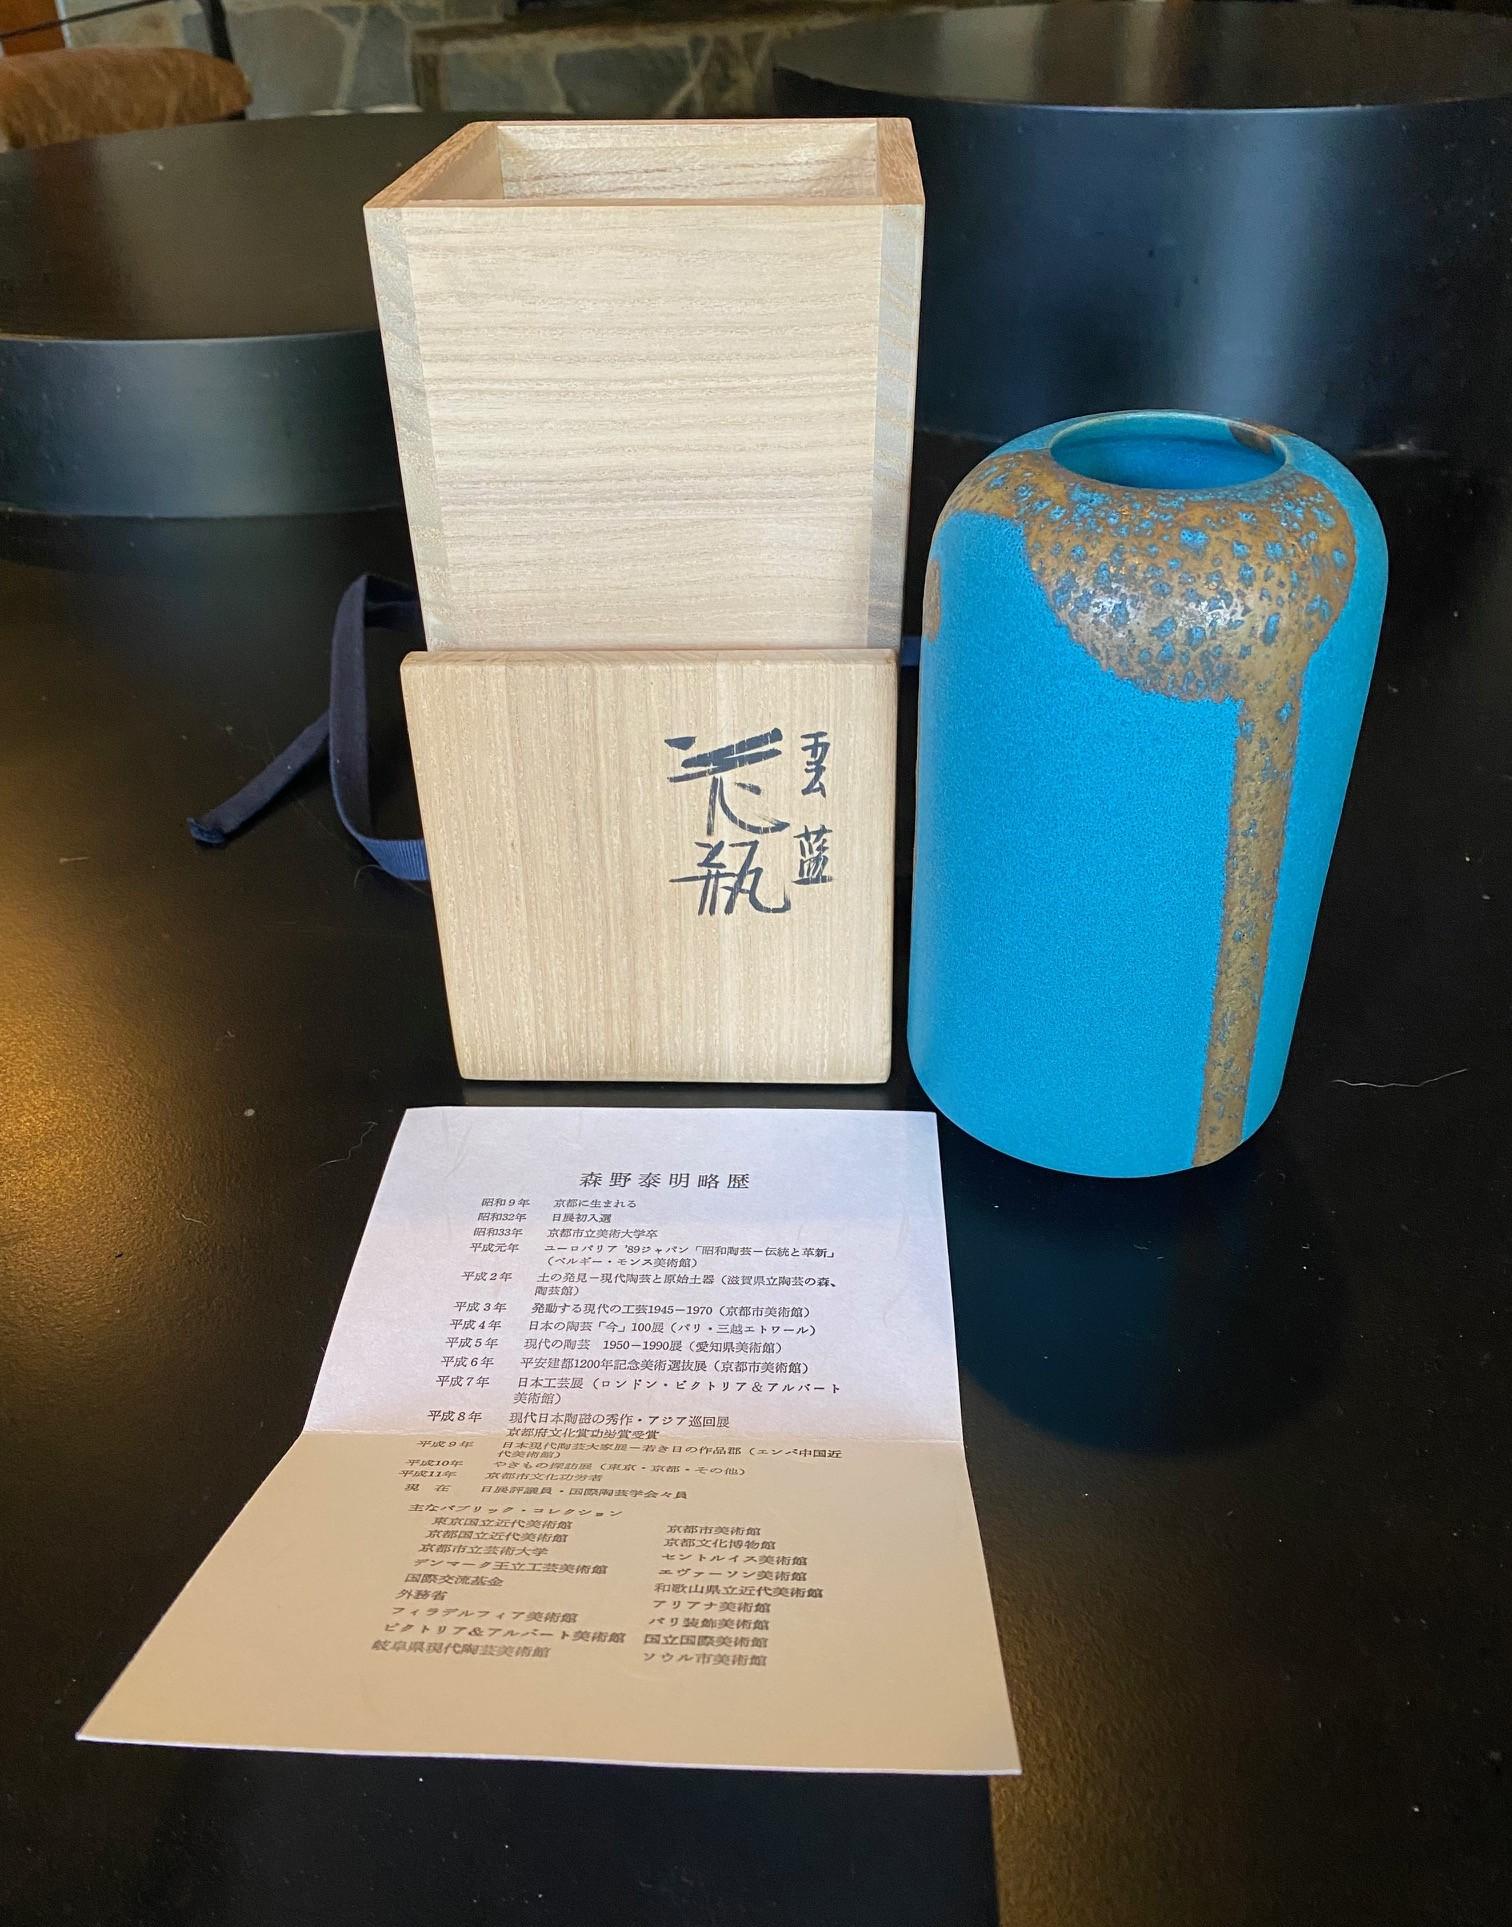 雲藍
花瓶
森野泰明略歴
昭和9年 京都に生まれる
昭和32年 日展初入選
昭和33年 京都市立美術大学卒
平成元年 ユーロパリア '89ジャパン「昭和陶芸−伝統と革新」
(ベルギー・モンス美術館)
平成2年 土の発見−現代陶芸と原始土器(滋賀県立陶芸の森、
陶芸館)
平成3年 発動する現代の工芸1945−1970(京都市美術館)
平成4年 日本の陶芸「今」100展(パリ・三越エトワール)
平成5年 現代の陶芸 1950−1990展(愛知県美術館)
平成6年 平安建都1200年記念美術選抜展(京都市美術館)
平成7年 日本工芸展(ロンドン・ビクトリア&アルバート
美術館)
平成8年 現代日本陶磁の秀作・アジア巡回展
京都府文化賞功労賞受賞
平成9年 日本現代陶芸大家展−若き日の作品郡(エンバ中国近
代美術館)
平成10年 やきもの探訪展(東京・京都・その他)
平成11年 京都市文化功労者
現在 日展評議員・国際陶芸学会々員
主なパブリック・コレクション
東京国立近代美術館 京都市美術館
京都国立近代美術館 京都文化博物館
京都市立芸術大学 セントルイス美術館
デンマーク王立工芸美術館 エヴァーソン美術館
国際交流基金 和歌山県立近代美術館
外務省 アリアナ美術館
フィラデルフィア美術館 パリ装飾美術館
ビクトリア&アルバート美術館 国立国際美術館
岐阜県現代陶芸美術館 ソウル市美術館